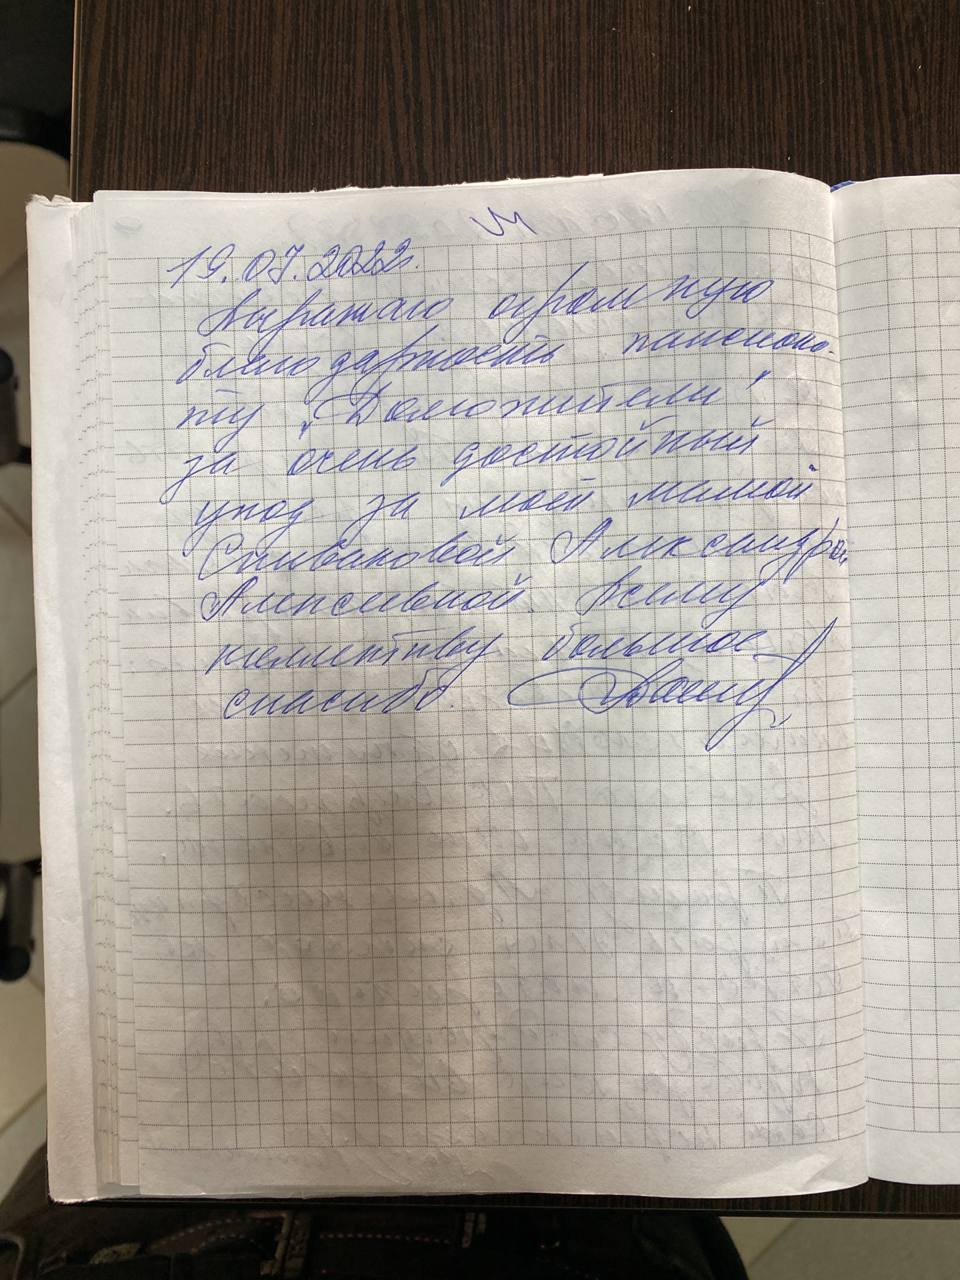 19.07.2022г.
Выражаю огромную
благодарность пансиона-
ту "Долгожители"
за очень достойный
уход за моей мамой
Спиваковой Александрой
Алексеевной. Всему
коллективу большое
спасибо.